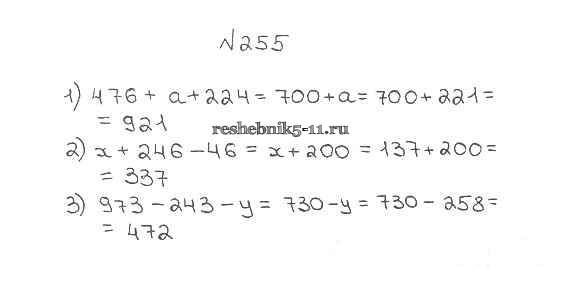 №255
1) 476 + a + 224 = 700 + a = 700 + 221 =
= 921
reshebnik5-11.ru
2) x + 246 - 46 = x + 200 = 137 + 200 =
= 337
3) 973 - 243 - y = 730 - y = 730 - 258 =
= 472